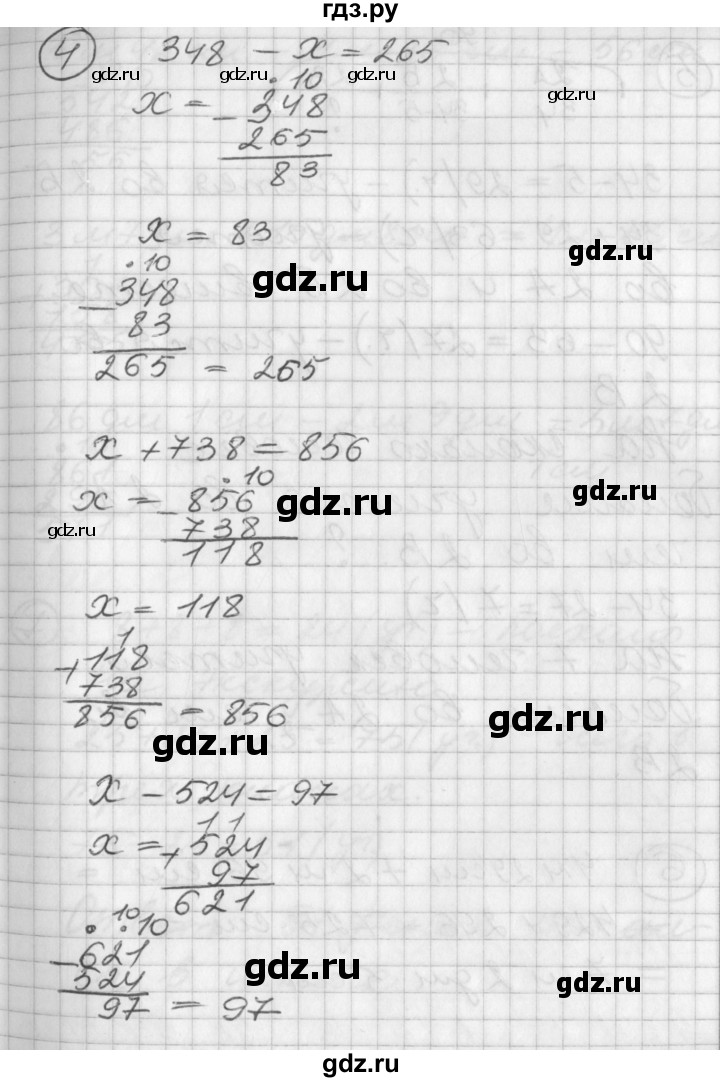 гдз.ру
4 348 - x = 265
gdz.ru gdz.ru gdz.ru
. 10
x = - 348
gdz.ru
265
83
x = 83
gdz.ru
. 10
gdz.ru
- 348
83
265 = 265
x + 738 = 856
. 10
gdz.ru
x = - 856
gdz.ru
gdz.ru
738
118
x = 118
1
+ 118
738
856 = 856
gdz.ru
gdz.ru
x - 524 = 97
11
x = + 524
97
621
. 10
. 10
- 621
gdz.ru
524
gdz.ru
97 = 97
gdz.ru